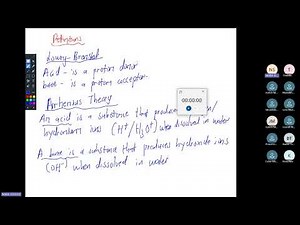 Definitions
Lowry-Bronsted
Acid - is a proton donor
base - is a proton acceptor
Arrhenius Theory
An acid is a substance that produces
hydronium ions (H⁺/H₃O⁺) when dissolved in water
A base is a substance that produces hydroxide ions
(OH⁻) when dissolved in water
00:00:00